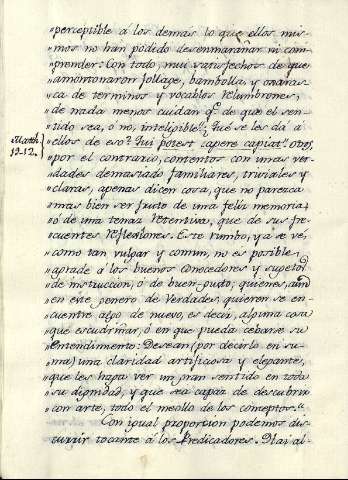 "perceptible â los demas lo que ellos mis-
"mos no han podido desenmarañar ni com-
"prender: Con todo, mui satisfechos de que
"amontonaron follage, bambolla, y
"ca de terminos y vocablos retumbrones,
"de nada menos cuidan q.e de que el sen-
"tido sea, ô no, inteligible: què se les dâ â
Math.
19.12.
"ellos de eso? Qui potest capere capiat. Otros,
"por el contrario, contentos con unas ver-
"dades demasiado familiares, triviales y
"claras, apenas dicen cosa, que no paresca
"mas bien ser fruto de una feliz memoria,
"ô de una tenaz retentiva, que de sus fre-
"cuentes reflexiones. Este rumbo, yâ se ve,
"como tan vulgar y comun, no es posible
"agrade â los buenos conocedores y sugetos
"de instruccion, ô de buen gusto; quienes, aun
"en este genero de verdades, quieren se en-
"cuentre algo de nuevo, es decir, alguna cosa
"que escudriñar, ô en que pueda cebarse su
"entendimiento: Desean (por decirlo en su-
"ma) una claridad artificiosa y elegante,
"que les haga ver un gran sentido en toda
"su dignidad, y que sea capaz de descubrir
"con arte, todo el meollo de los conceptos."
Con igual proporcion podemos dis-
currir tocante â los Predicadores. Hai al-